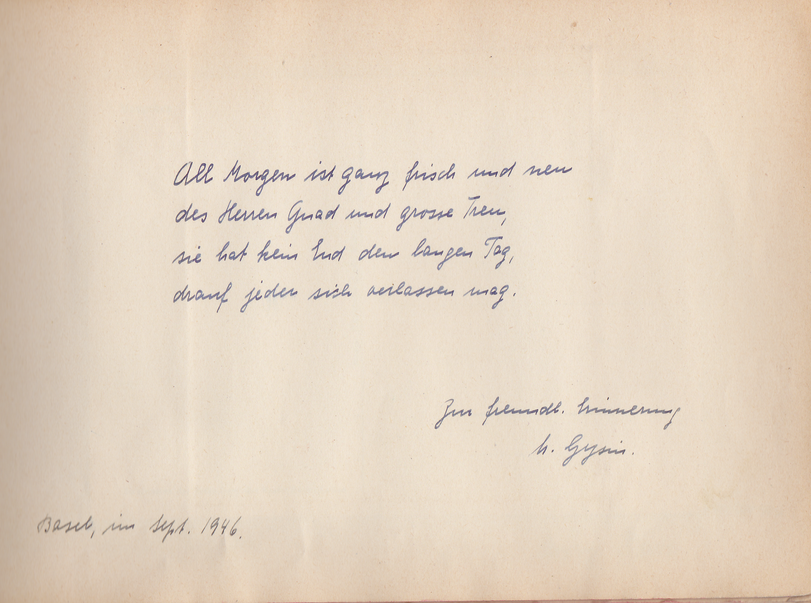 All Morgen ist ganz frisch und neu
des Herren Gnad und grosse Treu,
sie hat kein End den langen Tag,
drauf jeder sich verlassen mag.
Zur freundl. Erinnerung
H. Gysin.
Basel, im Sept. 1946.